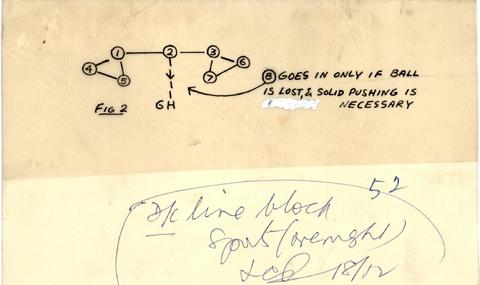 1 2 3
4 5 6 7
8 GOES IN ONLY IF BALL
IS LOST, & SOLID PUSHING IS
NECESSARY
FIG 2
GH
52
line block
Sport (overnight)
18/12